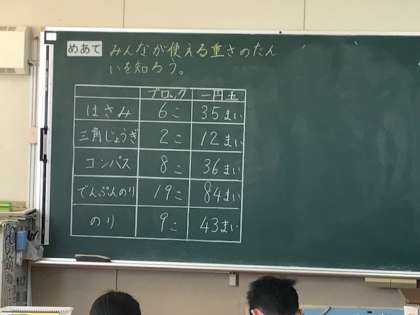 めあて みんなが使える重さのたん
いを知ろう。
ブロック 一円玉
はさみ 6こ 35まい
三角じょうぎ 2こ 12まい
コンパス 8こ 36まい
でんぷんのり 19こ 84まい
のり 9こ 43まい